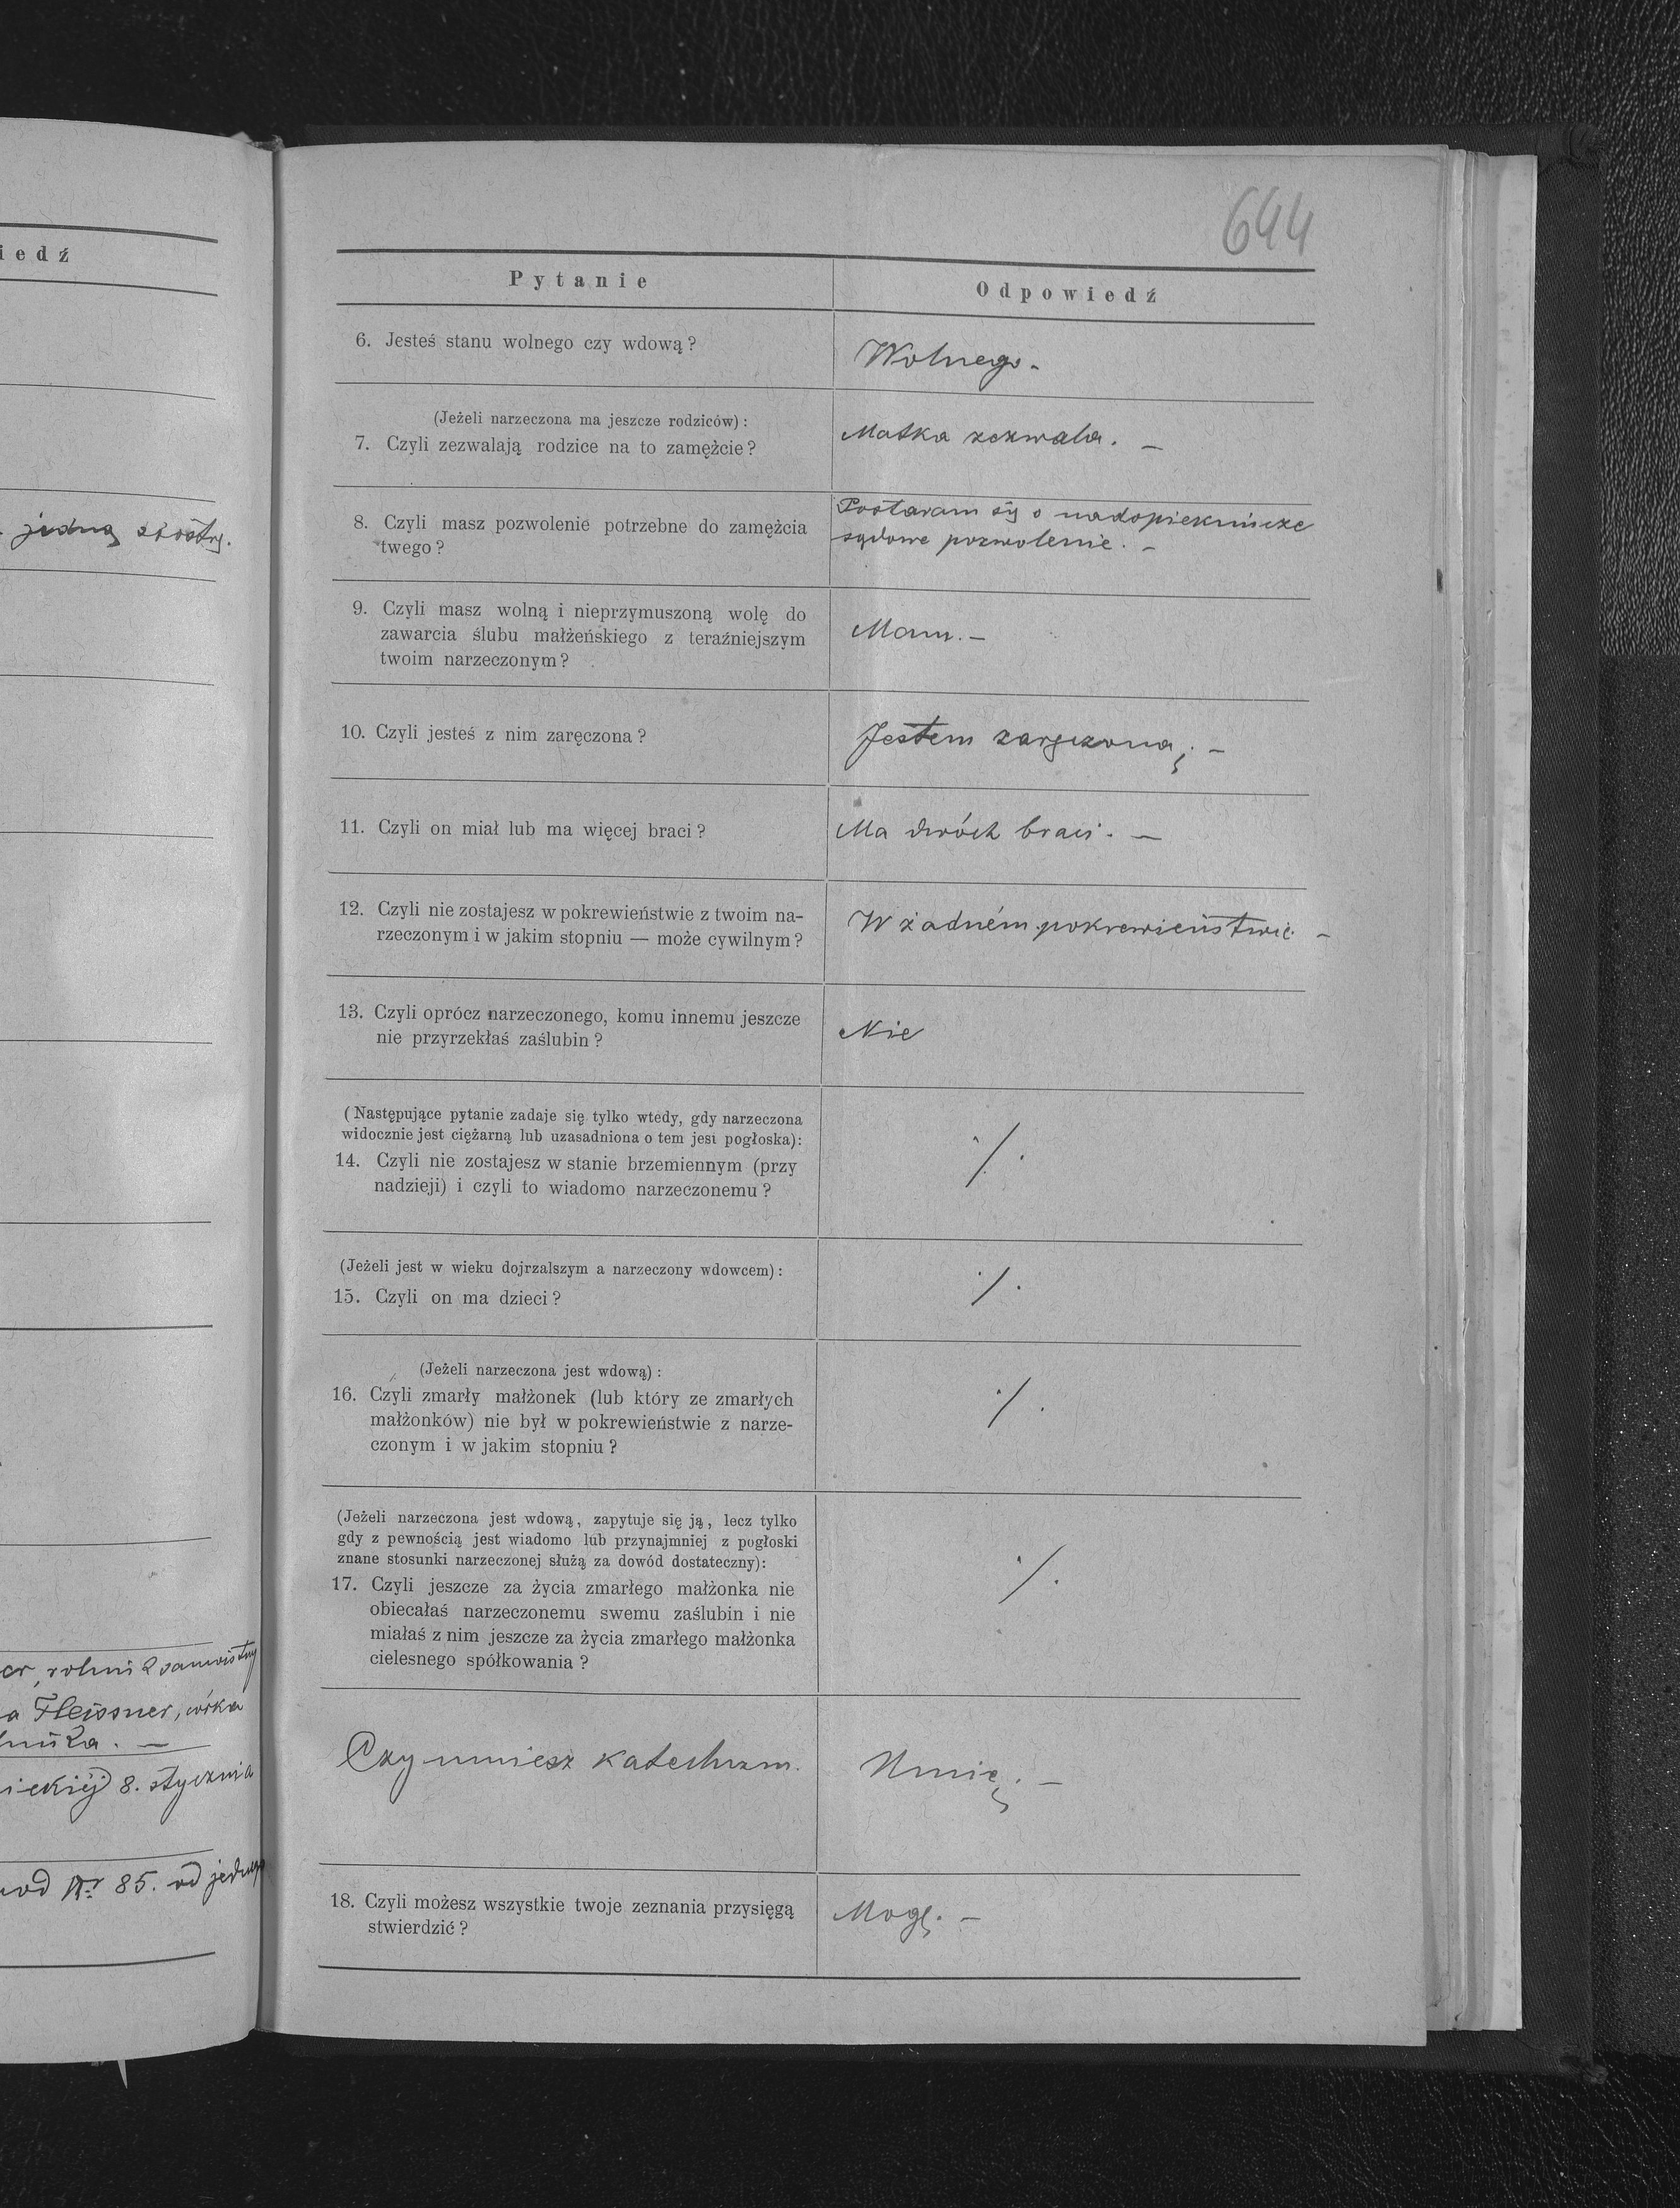 iedź
jedną siostrę.
rolni
a Fleissner, córka
8. stycznia
od Nr 85. od jednego
644
Pytanie
Odpowiedź
6. Jesteś stanu wolnego czy wdową?
Wolnego. -
(Jeżeli narzeczona ma jeszcze rodziców):
7. Czyli zezwalają rodzice na to zamężcie?
Matka zezwala. -
8. Czyli masz pozwolenie potrzebne do zamężcia
twego?
Postaram się o nadopiekuńcze
sądowe pozwolenie. -
9. Czyli masz wolną i nieprzymuszoną wolę do
zawarcia ślubu małżeńskiego z teraźniejszym
twoim narzeczonym?
Mam. -
10. Czyli jesteś z nim zaręczona?
Jestem zaręczoną. -
11. Czyli on miał lub ma więcej braci?
Ma dwóch braci. -
12. Czyli nie zostajesz w pokrewieństwie z twoim na-
rzeczonym i w jakim stopniu — może cywilnym?
W żadném pokrewieństwie. -
13. Czyli oprócz narzeczonego, komu innemu jeszcze
nie przyrzekłaś zaślubin?
Nie
(Następujące pytanie zadaje się tylko wtedy, gdy narzeczona
widocznie jest ciężarną lub uzasadniona o tem jest pogłoska):
14. Czyli nie zostajesz w stanie brzemiennym (przy
nadzieji) i czyli to wiadomo narzeczonemu?
./.
(Jeżeli jest w wieku dojrzalszym a narzeczony wdowcem):
15. Czyli on ma dzieci?
./.
(Jeżeli narzeczona jest wdową):
16. Czyli zmarły małżonek (lub który ze zmarłych
małżonków) nie był w pokrewieństwie z narze-
czonym i w jakim stopniu?
./.
(Jeżeli narzeczona jest wdową, zapytuje się ją, lecz tylko
gdy z pewnością jest wiadomo lub przynajmniej z pogłoski
znane stosunki narzeczonej służą za dowód dostateczny):
17. Czyli jeszcze za życia zmarłego małżonka nie
obiecałaś narzeczonemu swemu zaślubin i nie
miałaś z nim jeszcze za życia zmarłego małżonka
cielesnego spółkowania?
./.
Czy umiesz katechizm.
Umię. -
18. Czyli możesz wszystkie twoje zeznania przysięgą
stwierdzić?
Mogę. -